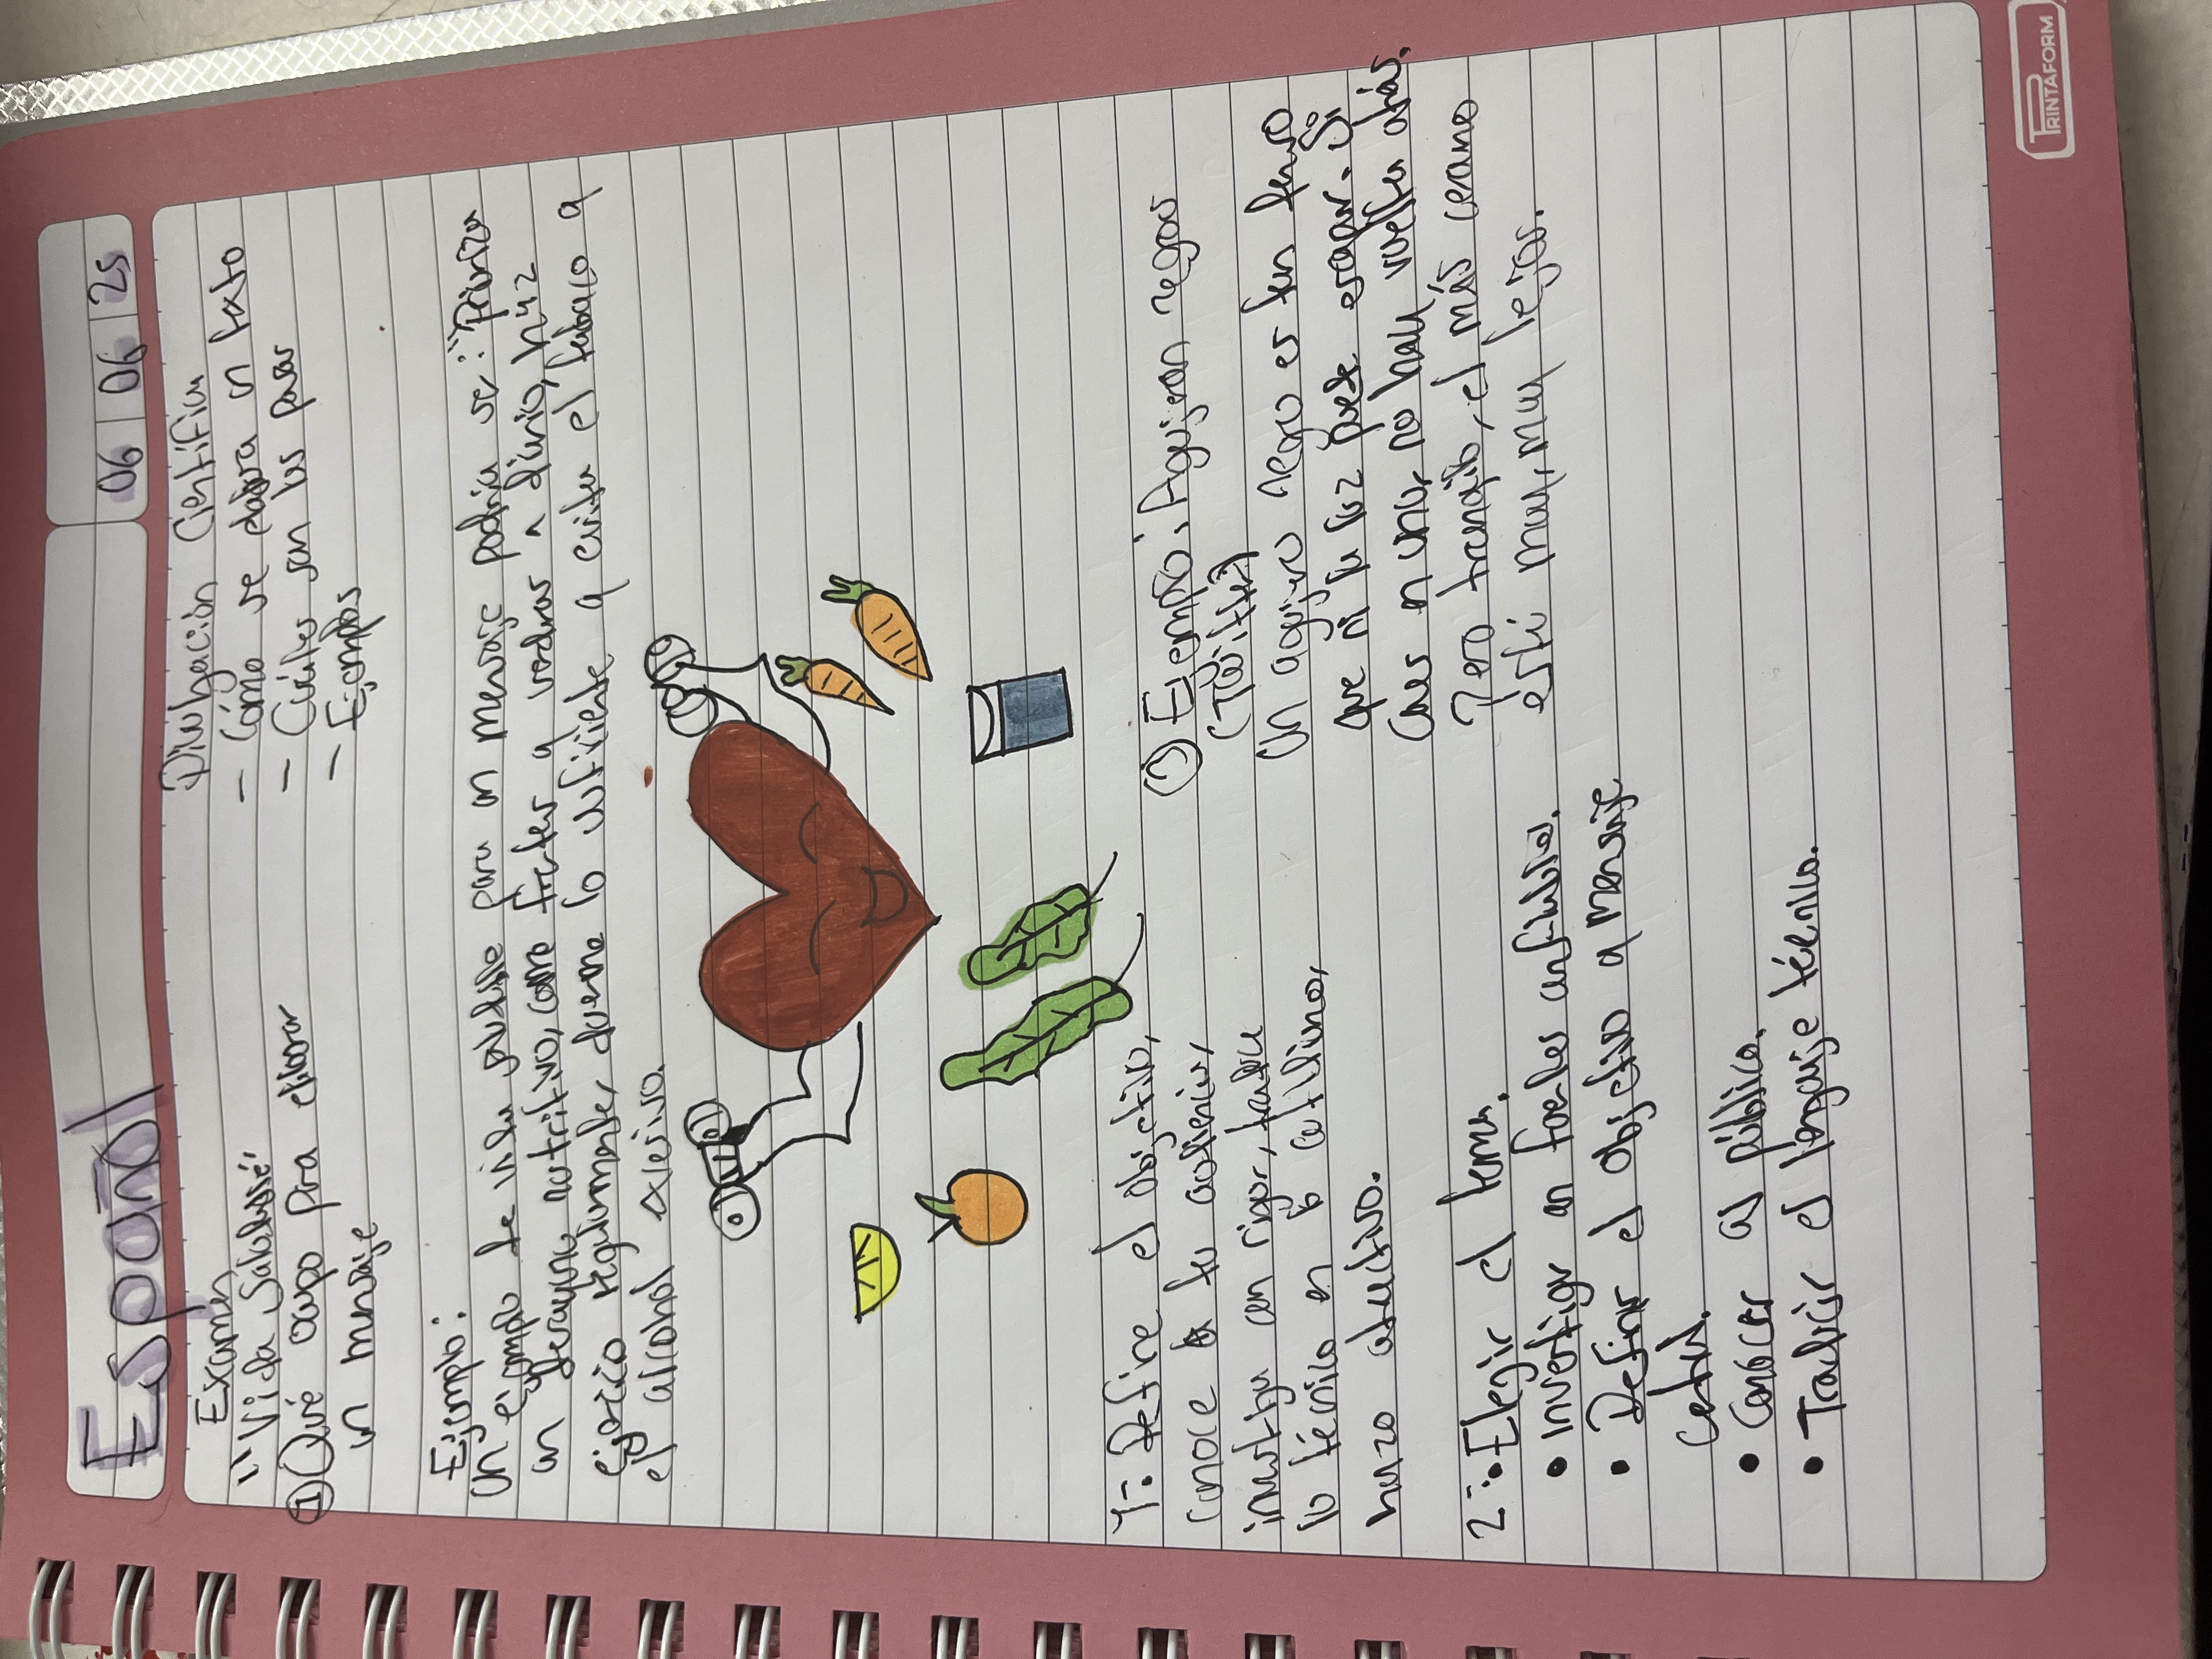 Español
06 | 06 | 25
Examen
"Vida Saludable"
① Qué ocupo para elaborar
un mensaje
Divulgación Científica
- Cómo se elabora un texto
- Cuáles son los pasos
- Ejemplos
Ejemplo:
Un ejemplo de vida saludable para un mensaje podría ser: "Prioriza
un desayuno nutritivo, come frutas y verduras a diario, haz
ejercicio regularmente, duerme lo suficiente y evita el tabaco y
el alcohol excesivo.
1-. Define el objetivo,
conoce a tu audiencia,
investiga con rigor, traduce
lo técnico en lo cotidiano,
humzo atractivo.
2-. Elegir el tema.
• Investigar en fuentes confiables.
• Definir el objetivo y mensaje
Central.
• Conocer al público.
• Traducir el lenguaje técnico.
① Ejemplo, Agujeron negros
(Twitter)
Un agujero negro es tan denso
que ni la luz puede escapar. Si
Caes en uno, no hay vuelta atrás.
Pero tranquilo, el más cercano
está muy, muy lejos.
PRINTAFORM